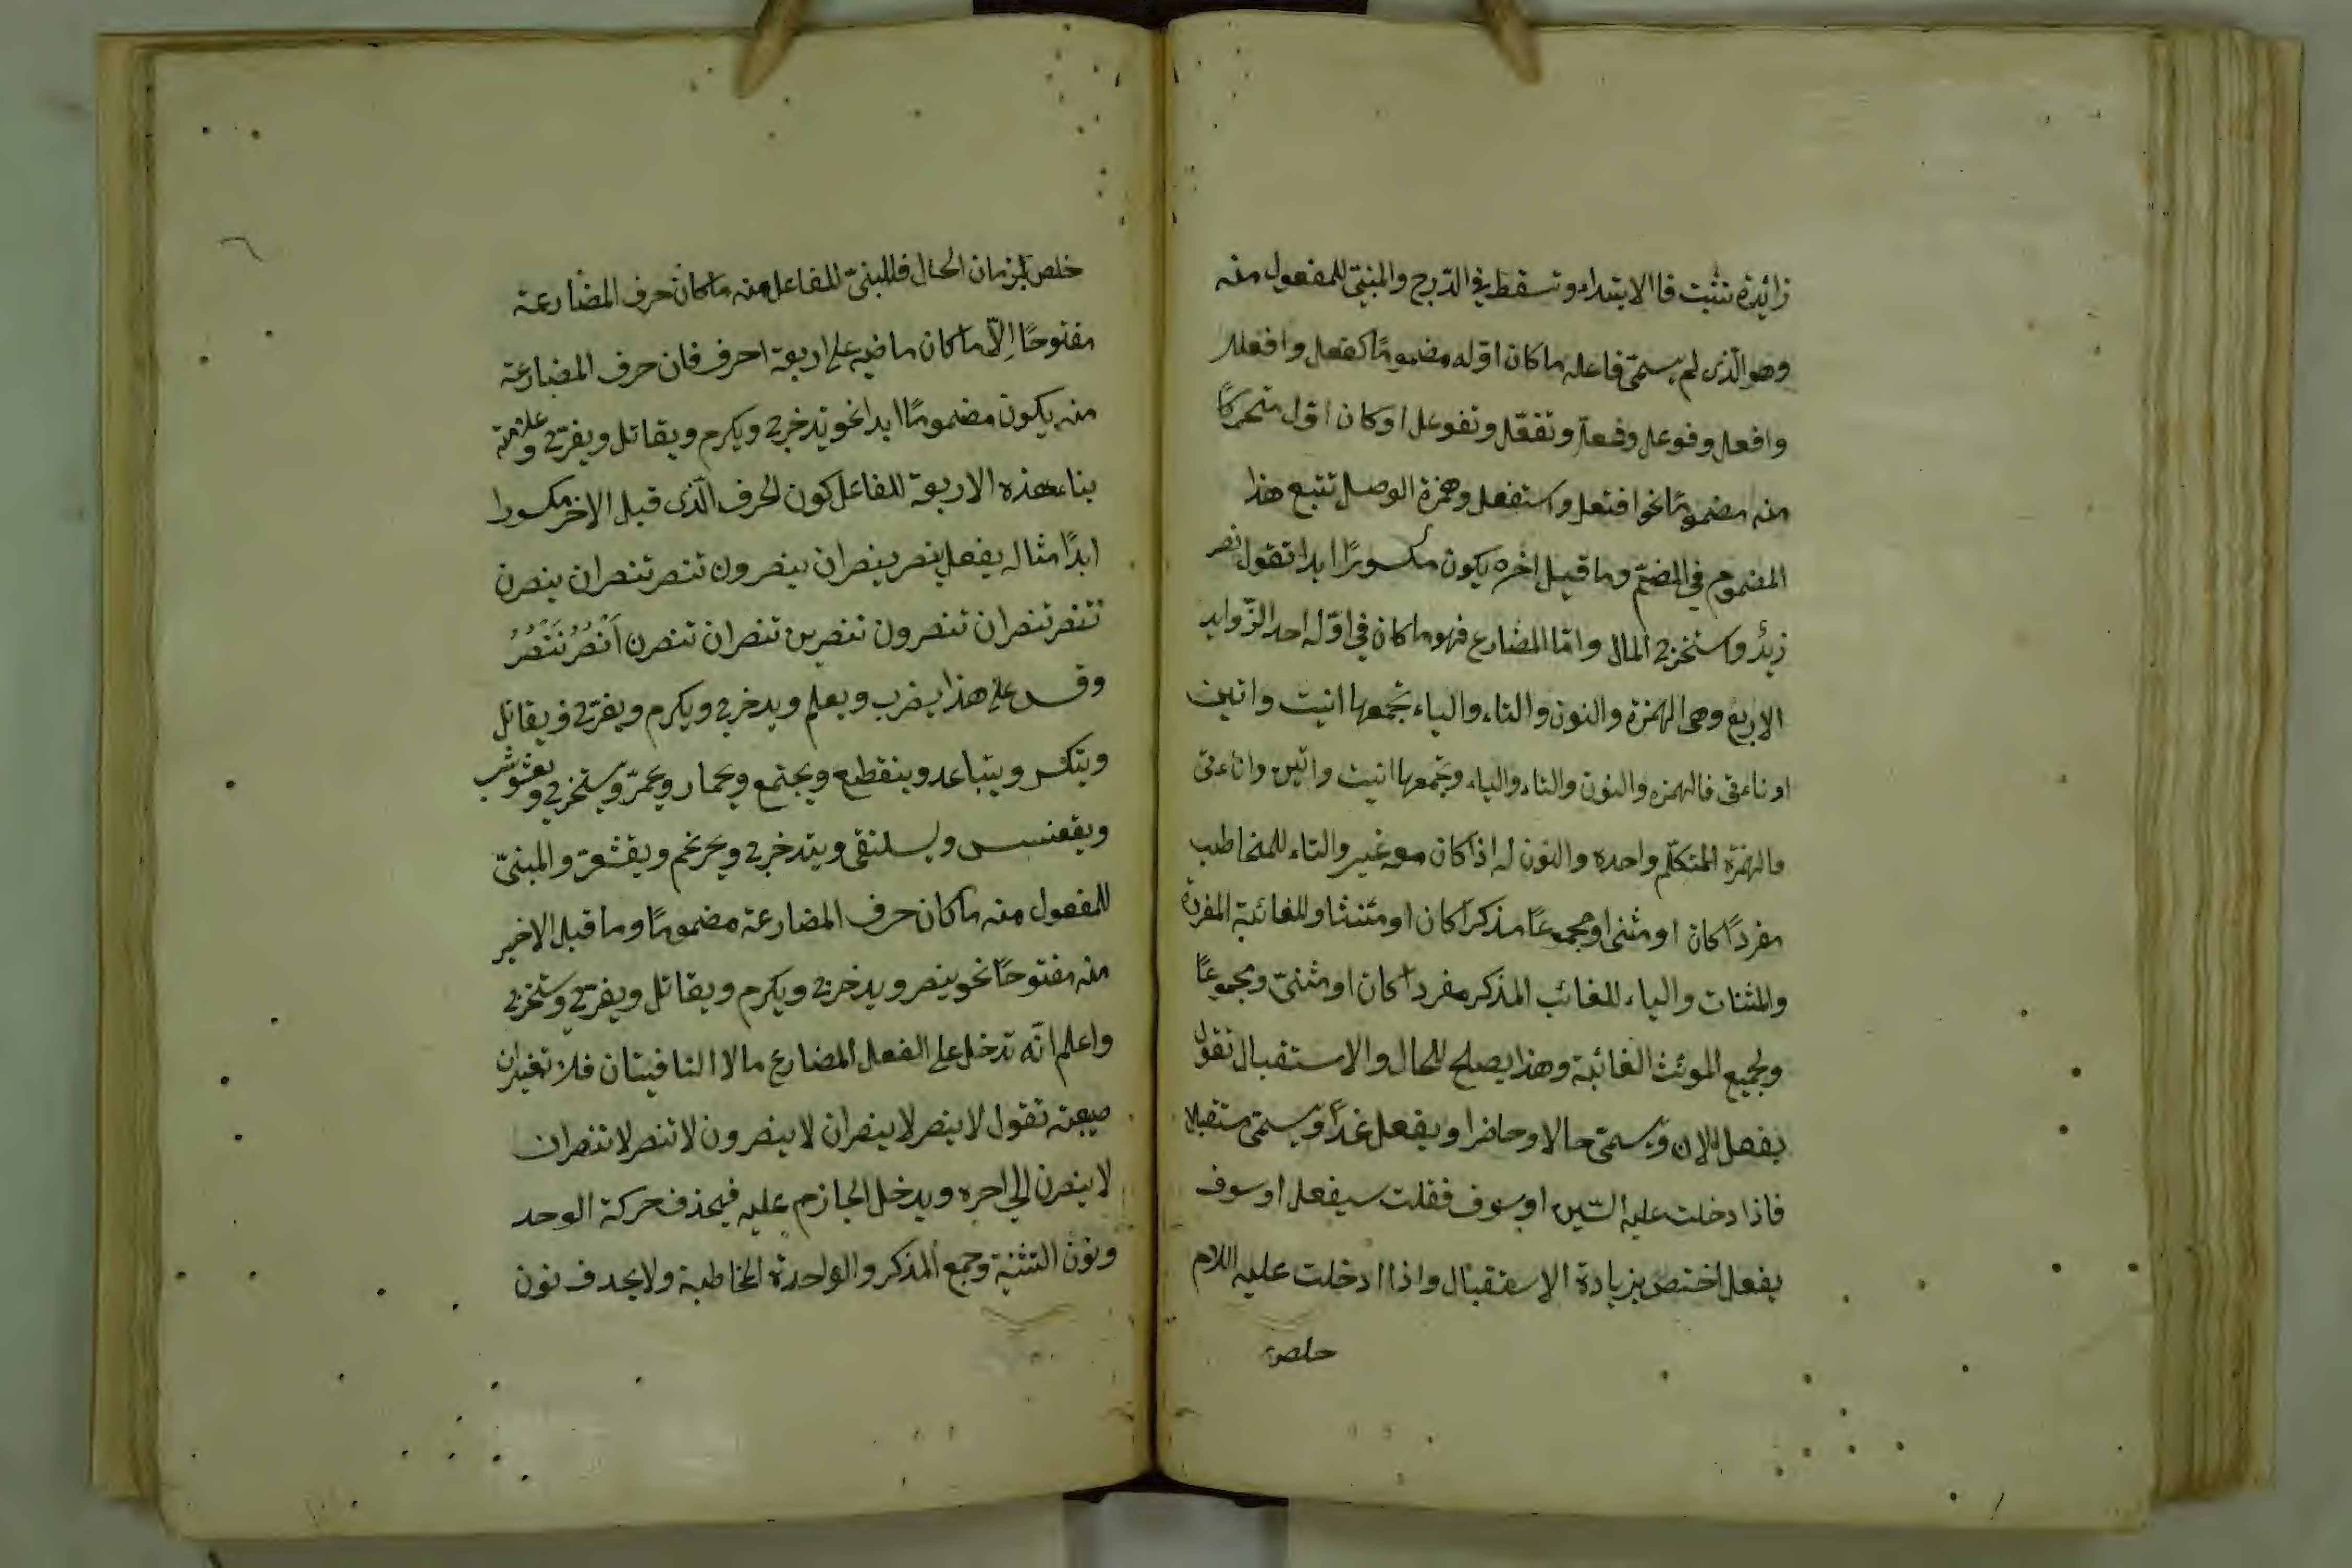 زائدة تثبت فا الابتداء وتسقط في الدّرج والمبنيّ للمفعول منه
وهو الّذى لم يسمّ فاعله ما كان اوّله مضموماً كفعل وافعلل
وافعل وفوعل وفعّل وتفعّل وتفوعل او كان اوّل متحركاً
منه مضموماً نحو افتعل واستفعل وهمزة الوصل تتبع هذا
المضموم في الضمّ وما قبل اخره يكون مكسوراً ابدا تقول نصر
زيدٌ واستخرج المال وامّا المضارع فهو ما كان في اوّله احد الزّوايد
الاربع وهى الهمزة والنون والتاء والياء تجمعها انيت واتين
او ناءتى فالهمزه والنون والتاء والياء وتجمعها انيت واتين واناءتى
فالهمزة المتكلّم واحده والنون له اذا كان معه غير والتاء للمخاطب
مفرداً كان او مثنى او مجموعاً مذكراً كان او مئنثا وللغائبة المفردة
والمثنات والياء للغائب المذكر مفرداً كان او مثنىّ ومجموعاً
ولجميع الموئث الغائبة وهذا يصلح للحال والاستقبال تقول
يفعل للان ويسمّى حالا وحاضرا ويفعل غداً ويسمّى مستقبلا
فاذا دخلت عليه السّين او سوف فقلت سيفعل او سوف
يفعل اختص بزيادة الاستقبال واذا ادخلت عليه اللام
خلص
خلص لزمان الحال فالمبنىّ للفاعل منه ما كان حرف المضارعة
مفتوحًا الّا ما كان ماضيه على اربعة احرف فان حرف المضارعة
منه يكون مضموماً ابدا نحو يدخرج ويكرم ويقاتل ويفرّح وعلامة
بناء هذه الاربعة للفاعل كون الحرف الّذى قبل الاخر مكسورا
ابدًا مثاله يفعل ينصر ينصران ينصرون تنصر تنصران ينصرن
تنصر تنصران تنصرون تنصرين تنصران تنصرن اَنْصُرُ نَنْصُرُ
وقس على هذا يضرب ويعلم ويدخرج ويكرم ويفرّح ويقاتل
ويتكسر ويتباعد وينقطع ويجتمع ويحمار ويحمرّ ويستخرج ويعشوشب
ويقعنسس ويسلنقى ويتدخرج ويحرنجم ويقشعرّ والمبنىّ
للمفعول منه ما كان حرف المضارعة مضموماً وما قبل الاخير
منه مفتوحًا نحو ينصر ويدخرج ويكرم ويقاتل ويفرّح ويستخرج
واعلم انّه تدخل على الفعل المضارع ما لا النافيتان فلا تغيران
صيغته تقول لا ينصر لا ينصران لا ينصرون لا تنصر لا تنصران
لا ينصرن الى اخره ويدخل الجازم عليه فيحذف حركة الوحد
ونون التثنية وجمع المذكر والواحدة المخاطبة ولا يحدف نون